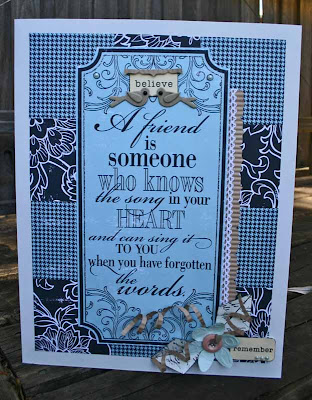 believe
A friend
is
someone
who knows
the song in your
HEART
and can sing it
TO YOU
when you have forgotten
the words.
remember